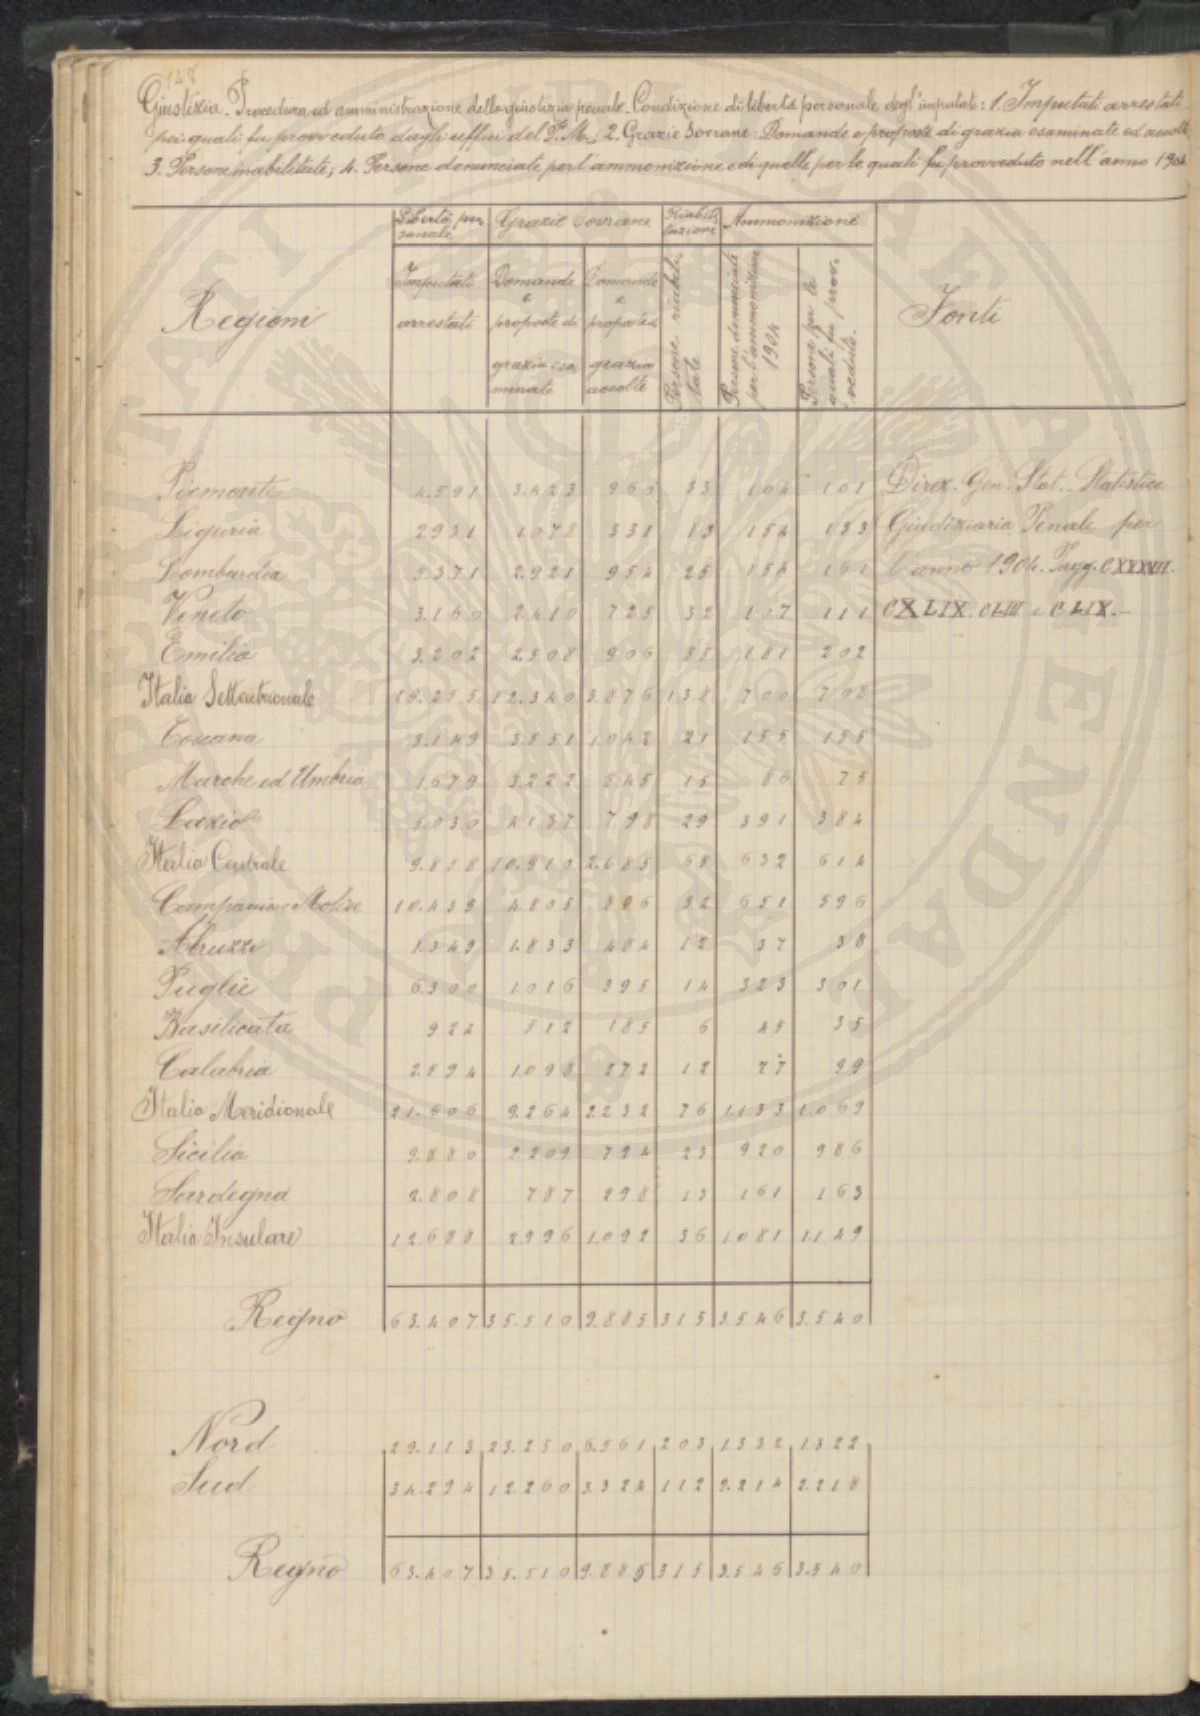 148
Giustizia. Procedura ed amministrazione della giustizia penale. Condizione di libertà personale degl'imputati: 1. Imputati arrestati
pei quali fu provveduto dagli uffici del P. M.; 2. Grazie Sovrane: Domande e proposte di grazia esaminate ed accolte;
3. Persone inabilitate; 4. Persone denunciate per l'ammonizione e di quelle per le quali fu provveduto nell'anno 1904
Regioni
Libertà per
sonale
Grazie Sovrane
Riabili
tazioni
Ammonizione
Fonti
Imputati
arrestati
Domande
e
proposte di
grazia esa
minate
Domande
e
proposte di
grazia
accolte
Persone riabili
tate
Persone denunciate
per l'ammonizione
1904
Persone per le
quali fu prov-
veduto.
Piemonte 4.591 3.423 960 33 104 101 Direz. Gen. Stat. Statistica
Liguria 2931 1078 331 13 154 133 Giudiziaria Penale per
Lombardia 5.371 2.921 954 25 154 161 l'anno 1904. Pagg.
Veneto 3.160 2.410 725 32 107 111 CXLIX. CLIII e CLIX.-
Emilia 3.202 2.508 906 35 181 202
Italia Settentrionale 19.255 12.340 3.876 138 700 708
Toscana 3.149 3.551 1.042 21 155 155
Marche ed Umbria 1.679 3.222 845 15 86 75
Lazio 5.030 4.137 798 29 391 384
Italia Centrale 9.858 10.910 2.685 65 632 614
Campania e Molise 10.439 4.805 896 32 651 596
Abruzzi 1.349 1.833 484 12 37 38
Puglie 6.300 1.016 395 14 323 301
Basilicata 924 512 185 6 45 35
Calabria 2.594 1.098 272 12 77 99
Italia Meridionale 21.606 9.264 2232 76 1.133 1.069
Sicilia 9.880 2209 794 23 920 986
Sardegna 2.808 787 298 13 161 163
Italia Insulare 12.688 2996 1.092 36 1.081 1.149
Regno 63.407 35.510 9.885 315 3.546 3.540
Nord 29.113 23.250 6.561 203 1332 1322
Sud 34.294 12.260 3.324 112 2.214 2.218
Regno 63.407 35.510 9.885 315 3.546 3.540